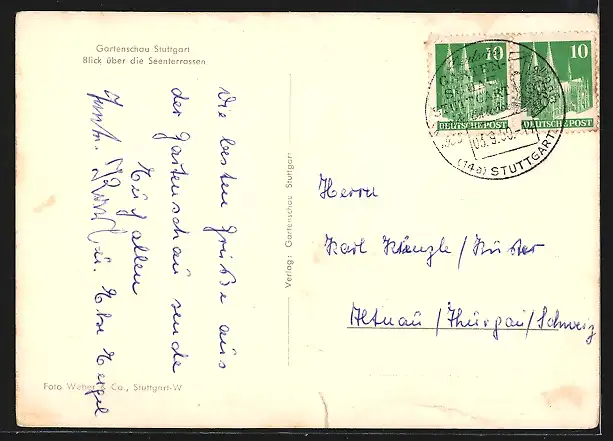 Gartenschau Stuttgart
Blick über die Seenterrassen
Die besten Grüße aus
der Gartenschau sende
Euch allen
u. Else
Foto Weber & Co., Stuttgart-W
Verlag: Gartenschau Stuttgart
10
10
DEUTSCHE POST
DEUTSCHE POST
GARTEN
STUTTGART
05.9.50.-17
(14a) STUTTGART
Herrn
Karl Känzle/Küster
Altnau/Thurgau/Schweiz